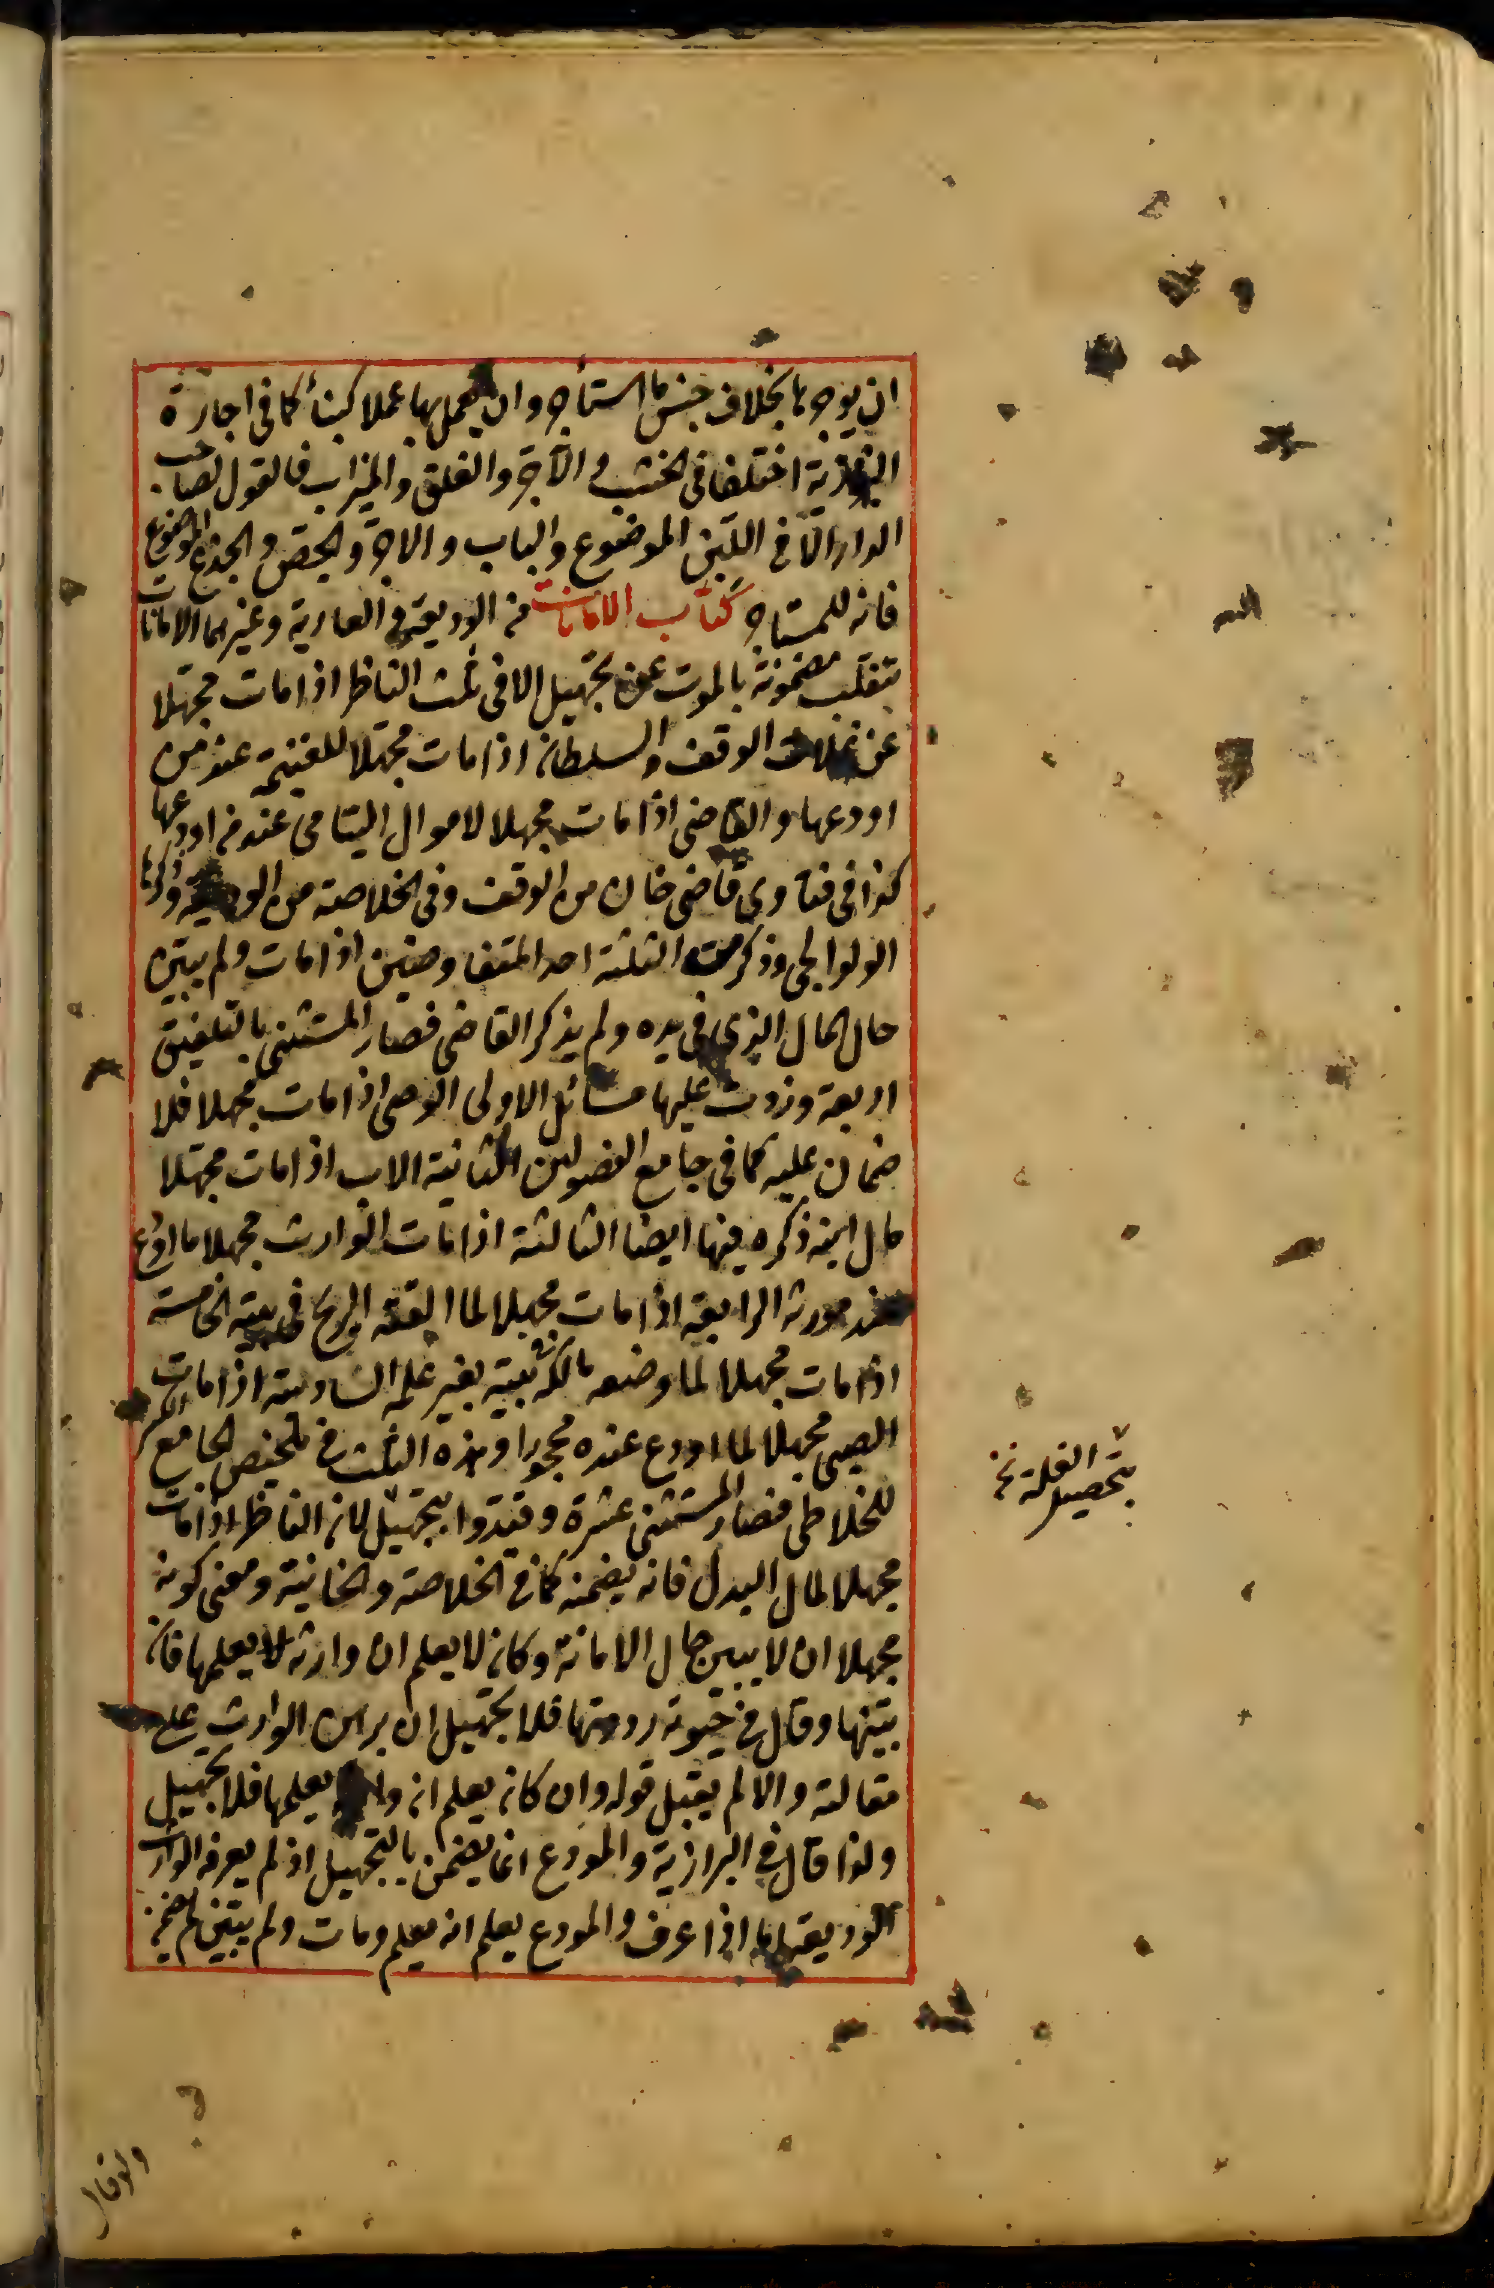 ان يوجرها بخلاف جنس ما استأجر وان يعمل بها عملا كبناء كما في اجارة
البزازية اختلفا في الخشب والآجر والغلق والميزاب فالقول لصاحب
الدار الا في اللبن الموضوع والباب والآجر والجص والجذع الموضوع
فانه للمستأجر كتاب الامانات من الوديعة والعارية وغيرهما الامانات
تنقلب مضمونة بالموت عن تجهيل الا في ثلث الناظر اذا مات مجهلا
عن غلات الوقف والسلطان اذا مات مجهلا للغنيمة عند من
اودعها والقاضي اذا مات مجهلا لاموال اليتامى عند من اودعها
كذا في فتاوى قاضي خان من الوقف وفي الخلاصة من الوديعة وذكرها
الولوالجي وذكر من الثلثة احد المتفاوضين اذا مات ولم يبين
حال المال الذي في يده ولم يذكر القاضي فصار المستثنى بالتلفيق
اربعة وزدت عليها مسائل الاولى الوصي اذا مات مجهلا فلا
ضمان عليه كما في جامع الفصولين الثانية الاب اذا مات مجهلا
مال ابنه ذكره فيها ايضا الثالثة اذا مات الوارث مجهلا ما اودع
عند مورثه الرابعة اذا مات مجهلا لما القته الريح في بيته الخامسة
اذا مات مجهلا لما وضعه مالكه في بيته بغير علمه السادسة اذا مات
الصبي مجهلا لما اودع عنده محجورا وهذه الثلث في تلخيص الجامع الكبير
للخلاطي فصار المستثنى عشرة وقيدوا بتجهيل لان الناظر اذا مات
مجهلا لمال البدل فانه يضمنه كما في الخلاصة والخانية ومعنى كونه
مجهلا ان لا يبين حال الامانة وكان لا يعلم ان وارثه لا يعلمها فان
بينها وقال في حيوته رددتها فلا تجهيل ان برهن الوارث على
مقالته والا لم يقبل قوله وان كان يعلم ان وارثه يعلمها فلا تجهيل
ولذا قال في البزازية والمودع انما يضمن بالتجهيل اذ لم يعرف الوارث
الوديعة اما اذا عرف والمودع يعلم انه يعلم ومات ولم يبين لم يضمن
بتحصيل الغلة نخ
ولو قال